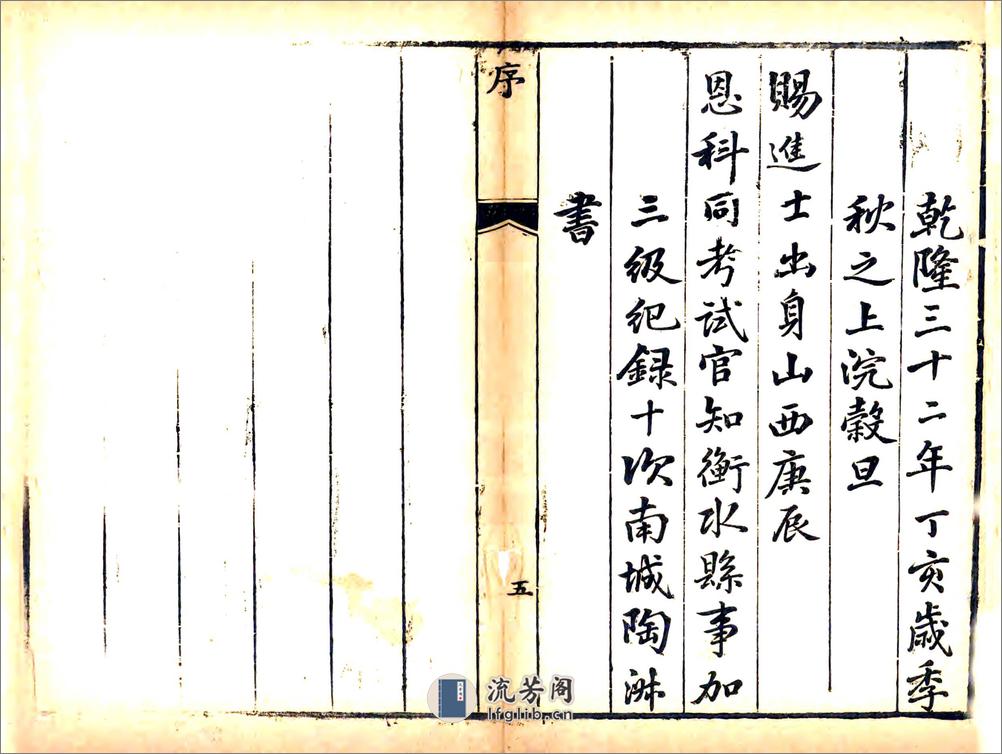 乾隆三十二年丁亥歲季
秋之上浣穀旦
賜進士出身山西庚辰
恩科同考試官知衡水縣事加
三級纪録十次南城陶淋
書
序
五
流芳阁
lfglib.cn